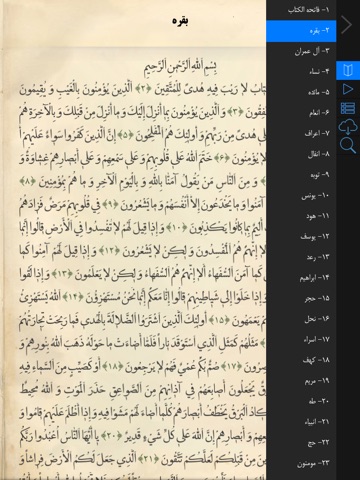 بقره
بِسْمِ اللَّهِ الرَّحْمنِ الرَّحِيمِ
لا رَيْبَ فِيهِ هُدىً لِلْمُتَّقِينَ ﴿۲﴾ الَّذِينَ يُؤْمِنُونَ بِالْغَيْبِ وَ يُقِيمُونَ
﴿۳﴾ وَ الَّذِينَ يُؤْمِنُونَ بِما أُنْزِلَ إِلَيْكَ وَ ما أُنْزِلَ مِنْ قَبْلِكَ وَ بِالْآخِرَةِ هُمْ
هُدىً مِنْ رَبِّهِمْ وَ أُولئِكَ هُمُ الْمُفْلِحُونَ ﴿۵﴾ إِنَّ الَّذِينَ كَفَرُوا سَواءٌ عَلَيْهِمْ أَ
لا يُؤْمِنُونَ ﴿۶﴾ خَتَمَ اللَّهُ عَلى قُلُوبِهِمْ وَ عَلى سَمْعِهِمْ وَ عَلى أَبْصارِهِمْ غِشاوَةٌ وَ
﴿۷﴾ وَ مِنَ النَّاسِ مَنْ يَقُولُ آمَنَّا بِاللَّهِ وَ بِالْيَوْمِ الْآخِرِ وَ ما هُمْ بِمُؤْمِنِينَ ﴿۸﴾
آمَنُوا وَ ما يَخْدَعُونَ إِلاَّ أَنْفُسَهُمْ وَ ما يَشْعُرُونَ ﴿۹﴾ فِي قُلُوبِهِمْ مَرَضٌ فَزادَهُمُ
أَلِيمٌ بِما كانُوا يَكْذِبُونَ ﴿۱۰﴾ وَ إِذا قِيلَ لَهُمْ لا تُفْسِدُوا فِي الْأَرْضِ قالُوا إِنَّما
إِنَّهُمْ هُمُ الْمُفْسِدُونَ وَ لكِنْ لا يَشْعُرُونَ ﴿۱۲﴾ وَ إِذا قِيلَ لَهُمْ آمِنُوا كَما
كَما آمَنَ السُّفَهاءُ أَلا إِنَّهُمْ هُمُ السُّفَهاءُ وَ لكِنْ لا يَعْلَمُونَ ﴿۱۳﴾ وَ إِذا لَقُوا
إِذا خَلَوْا إِلى شَياطِينِهِمْ قالُوا إِنَّا مَعَكُمْ إِنَّما نَحْنُ مُسْتَهْزِؤُنَ ﴿۱۴﴾ اللَّهُ يَسْتَهْزِئُ
يَعْمَهُونَ ﴿۱۵﴾ أُولئِكَ الَّذِينَ اشْتَرَوُا الضَّلالَةَ بِالْهُدى فَما رَبِحَتْ تِجارَتُهُمْ
﴿۱۶﴾ مَثَلُهُمْ كَمَثَلِ الَّذِي اسْتَوْقَدَ ناراً فَلَمَّا أَضاءَتْ ما حَوْلَهُ ذَهَبَ اللَّهُ بِنُورِهِمْ وَ
﴿۱۷﴾ صُمٌّ بُكْمٌ عُمْيٌ فَهُمْ لا يَرْجِعُونَ ﴿۱۸﴾ أَوْ كَصَيِّبٍ مِنَ السَّماءِ فِيهِ
يَجْعَلُونَ أَصابِعَهُمْ فِي آذانِهِمْ مِنَ الصَّواعِقِ حَذَرَ الْمَوْتِ وَ اللَّهُ مُحِيطٌ
يَكادُ الْبَرْقُ يَخْطَفُ أَبْصارَهُمْ كُلَّما أَضاءَ لَهُمْ مَشَوْا فِيهِ وَ إِذا أَظْلَمَ عَلَيْهِمْ قامُوا وَ
وَ أَبْصارِهِمْ إِنَّ اللَّهَ عَلى كُلِّ شَيْءٍ قَدِيرٌ ﴿۲۰﴾ يا أَيُّهَا النَّاسُ اعْبُدُوا رَبَّكُمُ
مِنْ قَبْلِكُمْ لَعَلَّكُمْ تَتَّقُونَ ﴿۲۱﴾ الَّذِي جَعَلَ لَكُمُ الْأَرْضَ فِراشاً وَ
۱- فاتحه الکتاب
۲- بقره
۳- آل عمران
۴- نساء
۵- مائده
۶- انعام
۷- اعراف
۸- انفال
۹- توبه
۱۰- یونس
۱۱- هود
۱۲- یوسف
۱۳- رعد
۱۴- ابراهیم
۱۵- حجر
۱۶- نحل
۱۷- اسراء
۱۸- کهف
۱۹- مریم
۲۰- طه
۲۱- انبیاء
۲۲- حج
۲۳- مومنون